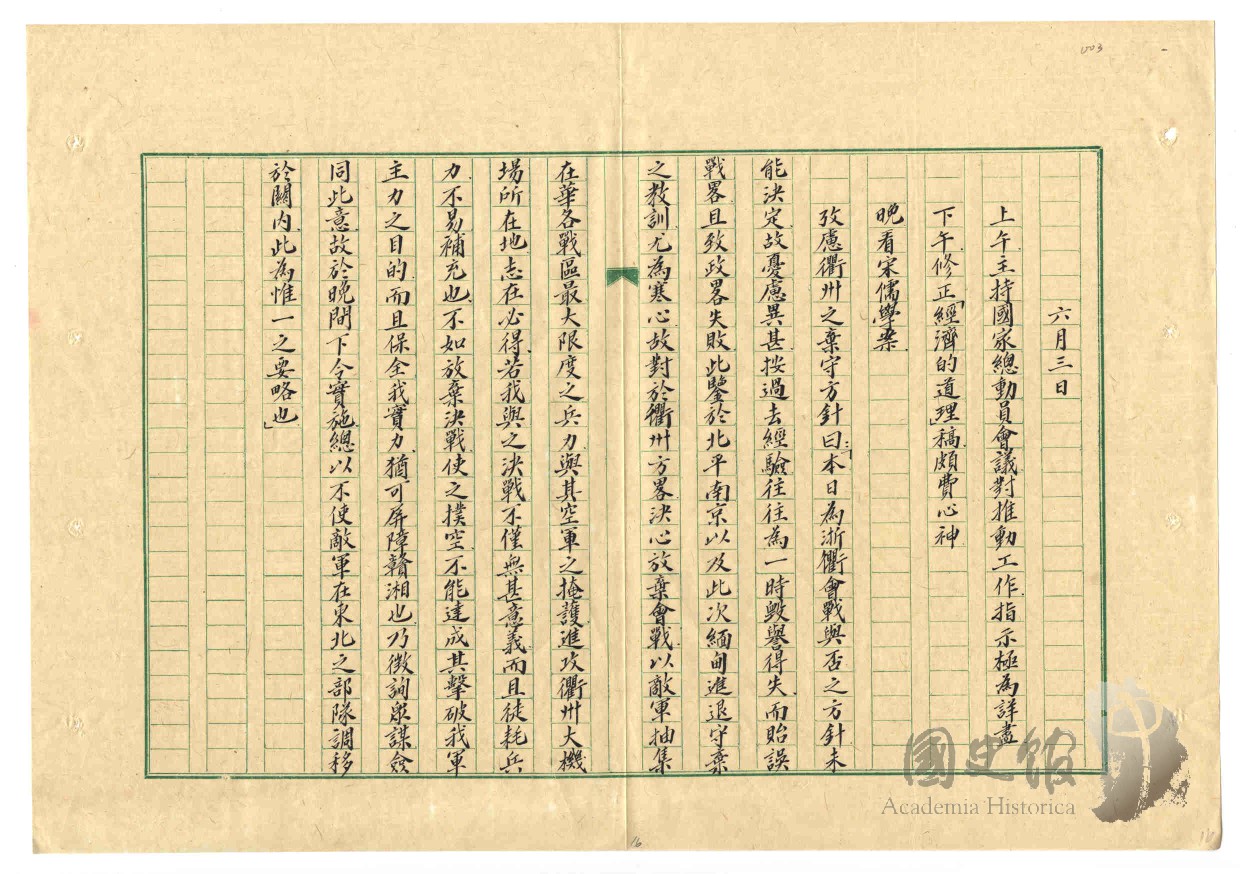 003
六月三日
上午主持國家總動員會議對推動工作指示極為詳盡
下午修正「經濟的道理」稿頗費心神
晚看宋儒學案
攷慮衢州之棄守方針曰「本日為浙衢會戰與否之方針未
能決定故憂慮異甚按過去經驗往往為一時毀譽得失而貽誤
戰畧且致政畧失敗此鑒於北平南京以及此次緬甸進退守棄
之教訓尤為寒心故對於衢州方畧決心放棄會戰以敵軍抽集
在華各戰區最大限度之兵力與其空軍之掩護進攻衢州大機
場所在地志在必得若我與之決戰不僅無甚意義而且徒耗兵
力不易補充也不如放棄決戰使之撲空不能達成其擊破我軍
主力之目的而且保全我實力猶可屏障贛湘也乃徵詢眾謀僉
同此意故於晚間下令實施總以不使敵軍在東北之部隊調移
於關內此為惟一之要略也」
16
國史館
Academia Historica